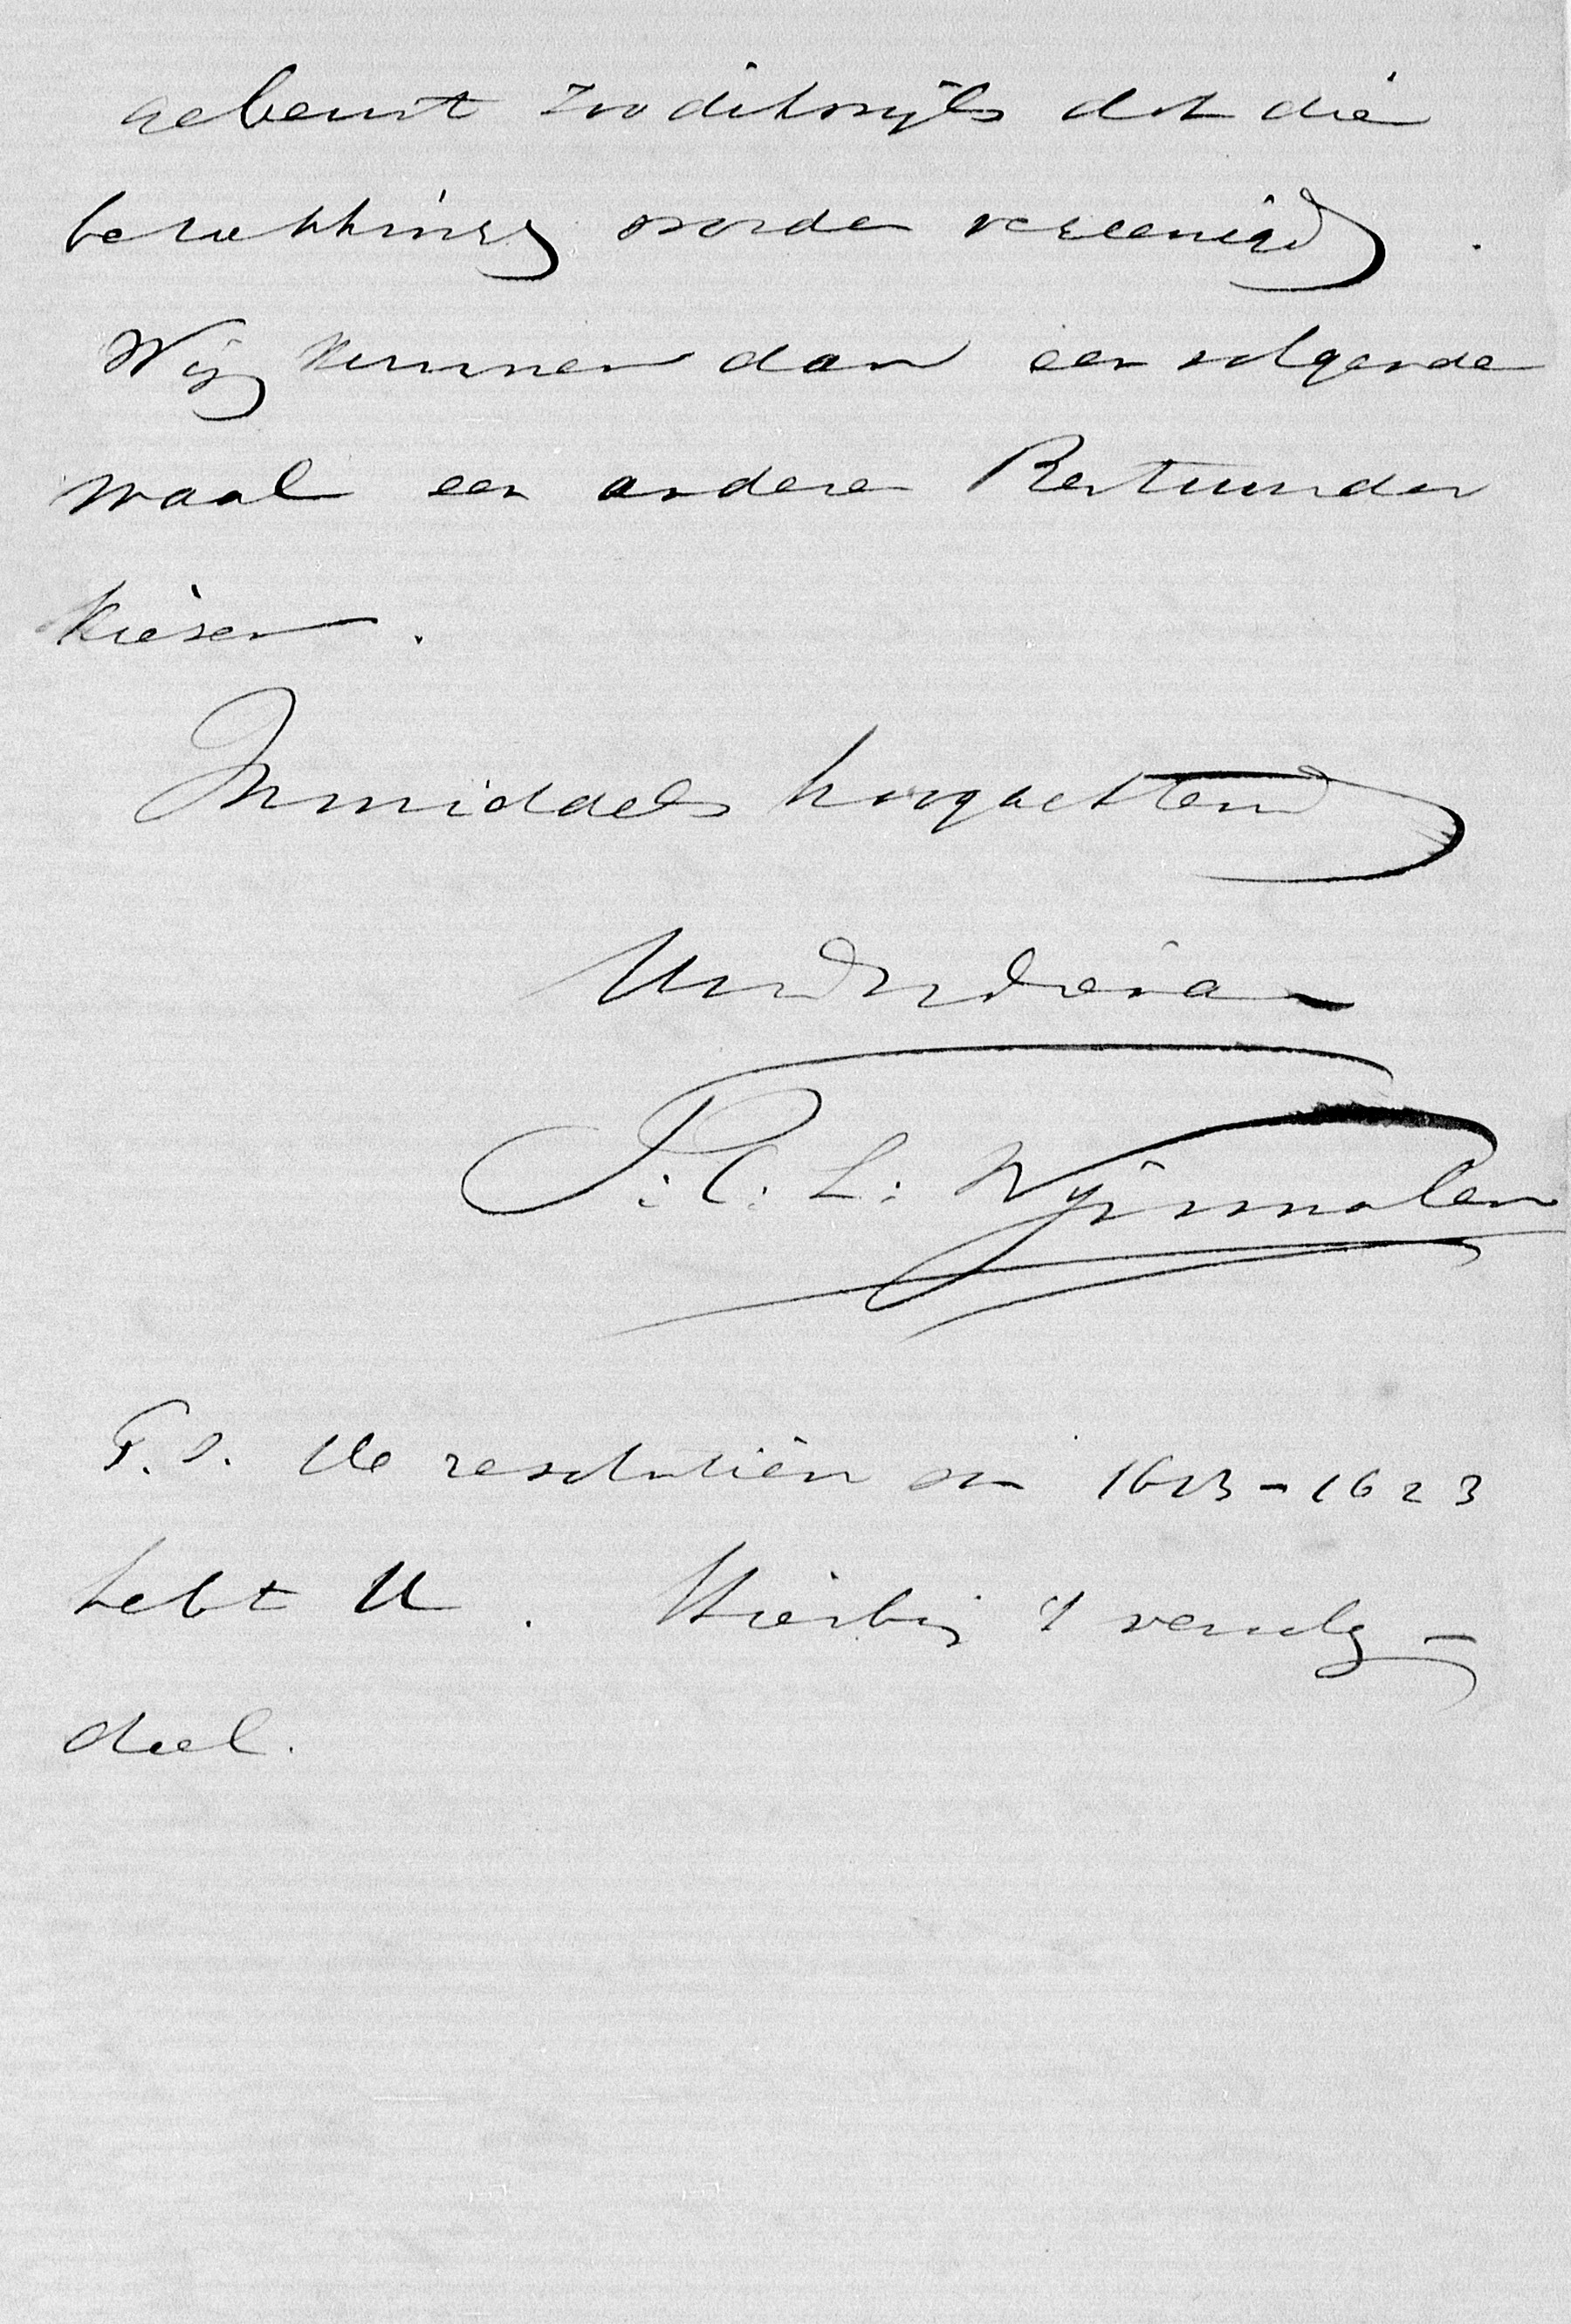 gebeurt zoo dikwijls dat die
betrekkingen worden vereenigd.
Wij kunnen dan een volgende
maal een andere Bestuurder
kiezen.
Inmiddels hoogachtend
UwEdDr
T. C. L. Wijnmalen
P.S. De resolutiën van 1613-1623
hebt U. Hierbij 't vervolg -
deel.